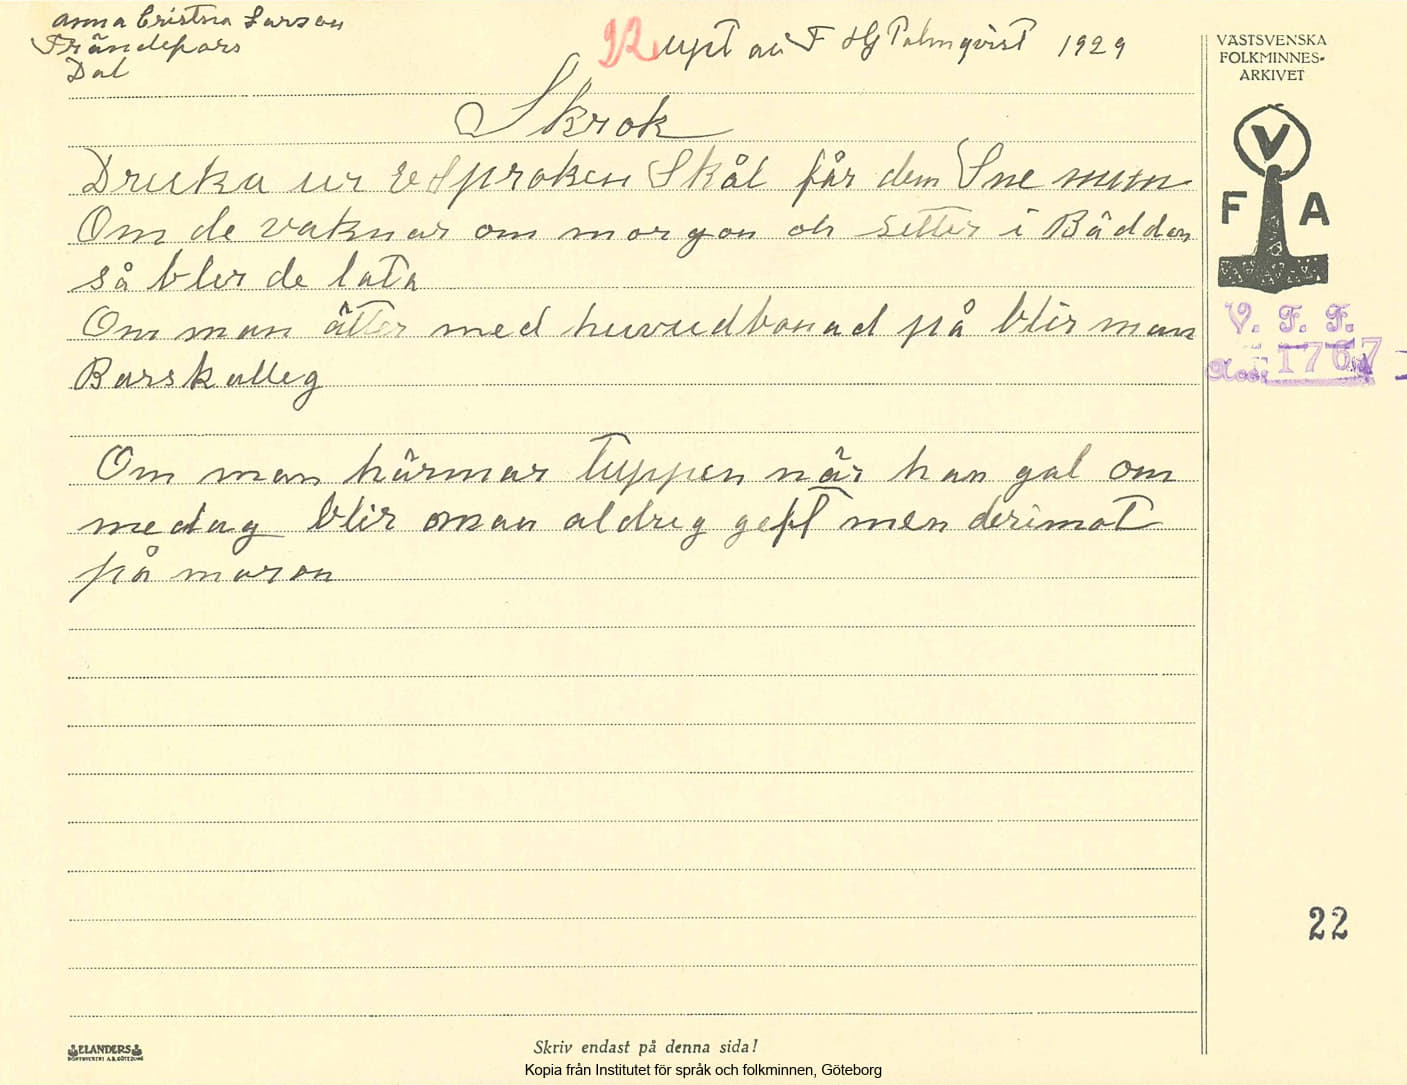 Anna Cristna Larson
Frändefors
Dal
92 upt av F HG Palmqvist 1929
Skrok
Dricka ur Esproken Skål får dem Sne mun
Om de vaknar om morgon och setter i Bädden
så bler de lata
Om man ätter med huvudbonad på blir man
Barskalleg
Om man härmar tuppen när han gal om
medag blir man aldrig geft men derimot
på maron
VÄSTSVENSKA
FOLKMINNES-
ARKIVET
V
F A
V. F. F.
Acc. 1767
22
ELANDERS
Skriv endast på denna sida!
Kopia från Institutet för språk och folkminnen, Göteborg